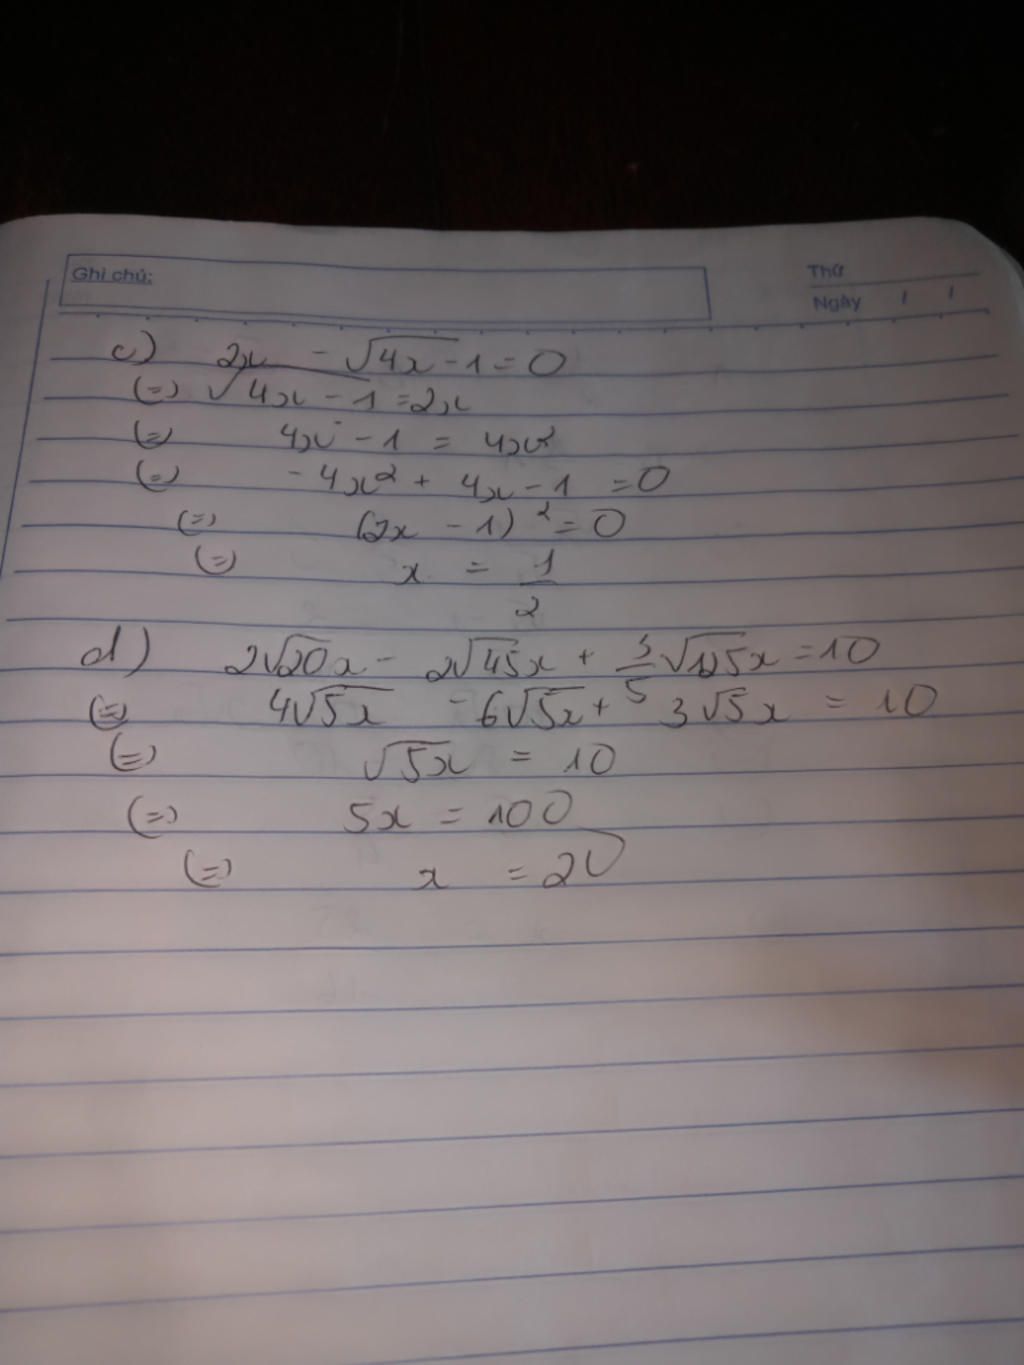 Ghi chú:
Thứ
Ngày / /
c) 2x - √4x - 1 = 0
(=) √4x - 1 = 2x
(=) 4x - 1 = 4x²
(=) - 4x² + 4x - 1 = 0
(=) (2x - 1)² = 0
(=) x = 1/2
d) 2√20x - 2√45x + 3/5 √125x = 10
(=) 4√5x - 6√5x + 3√5x = 10
(=) √5x = 10
(=) 5x = 100
(=) x = 20